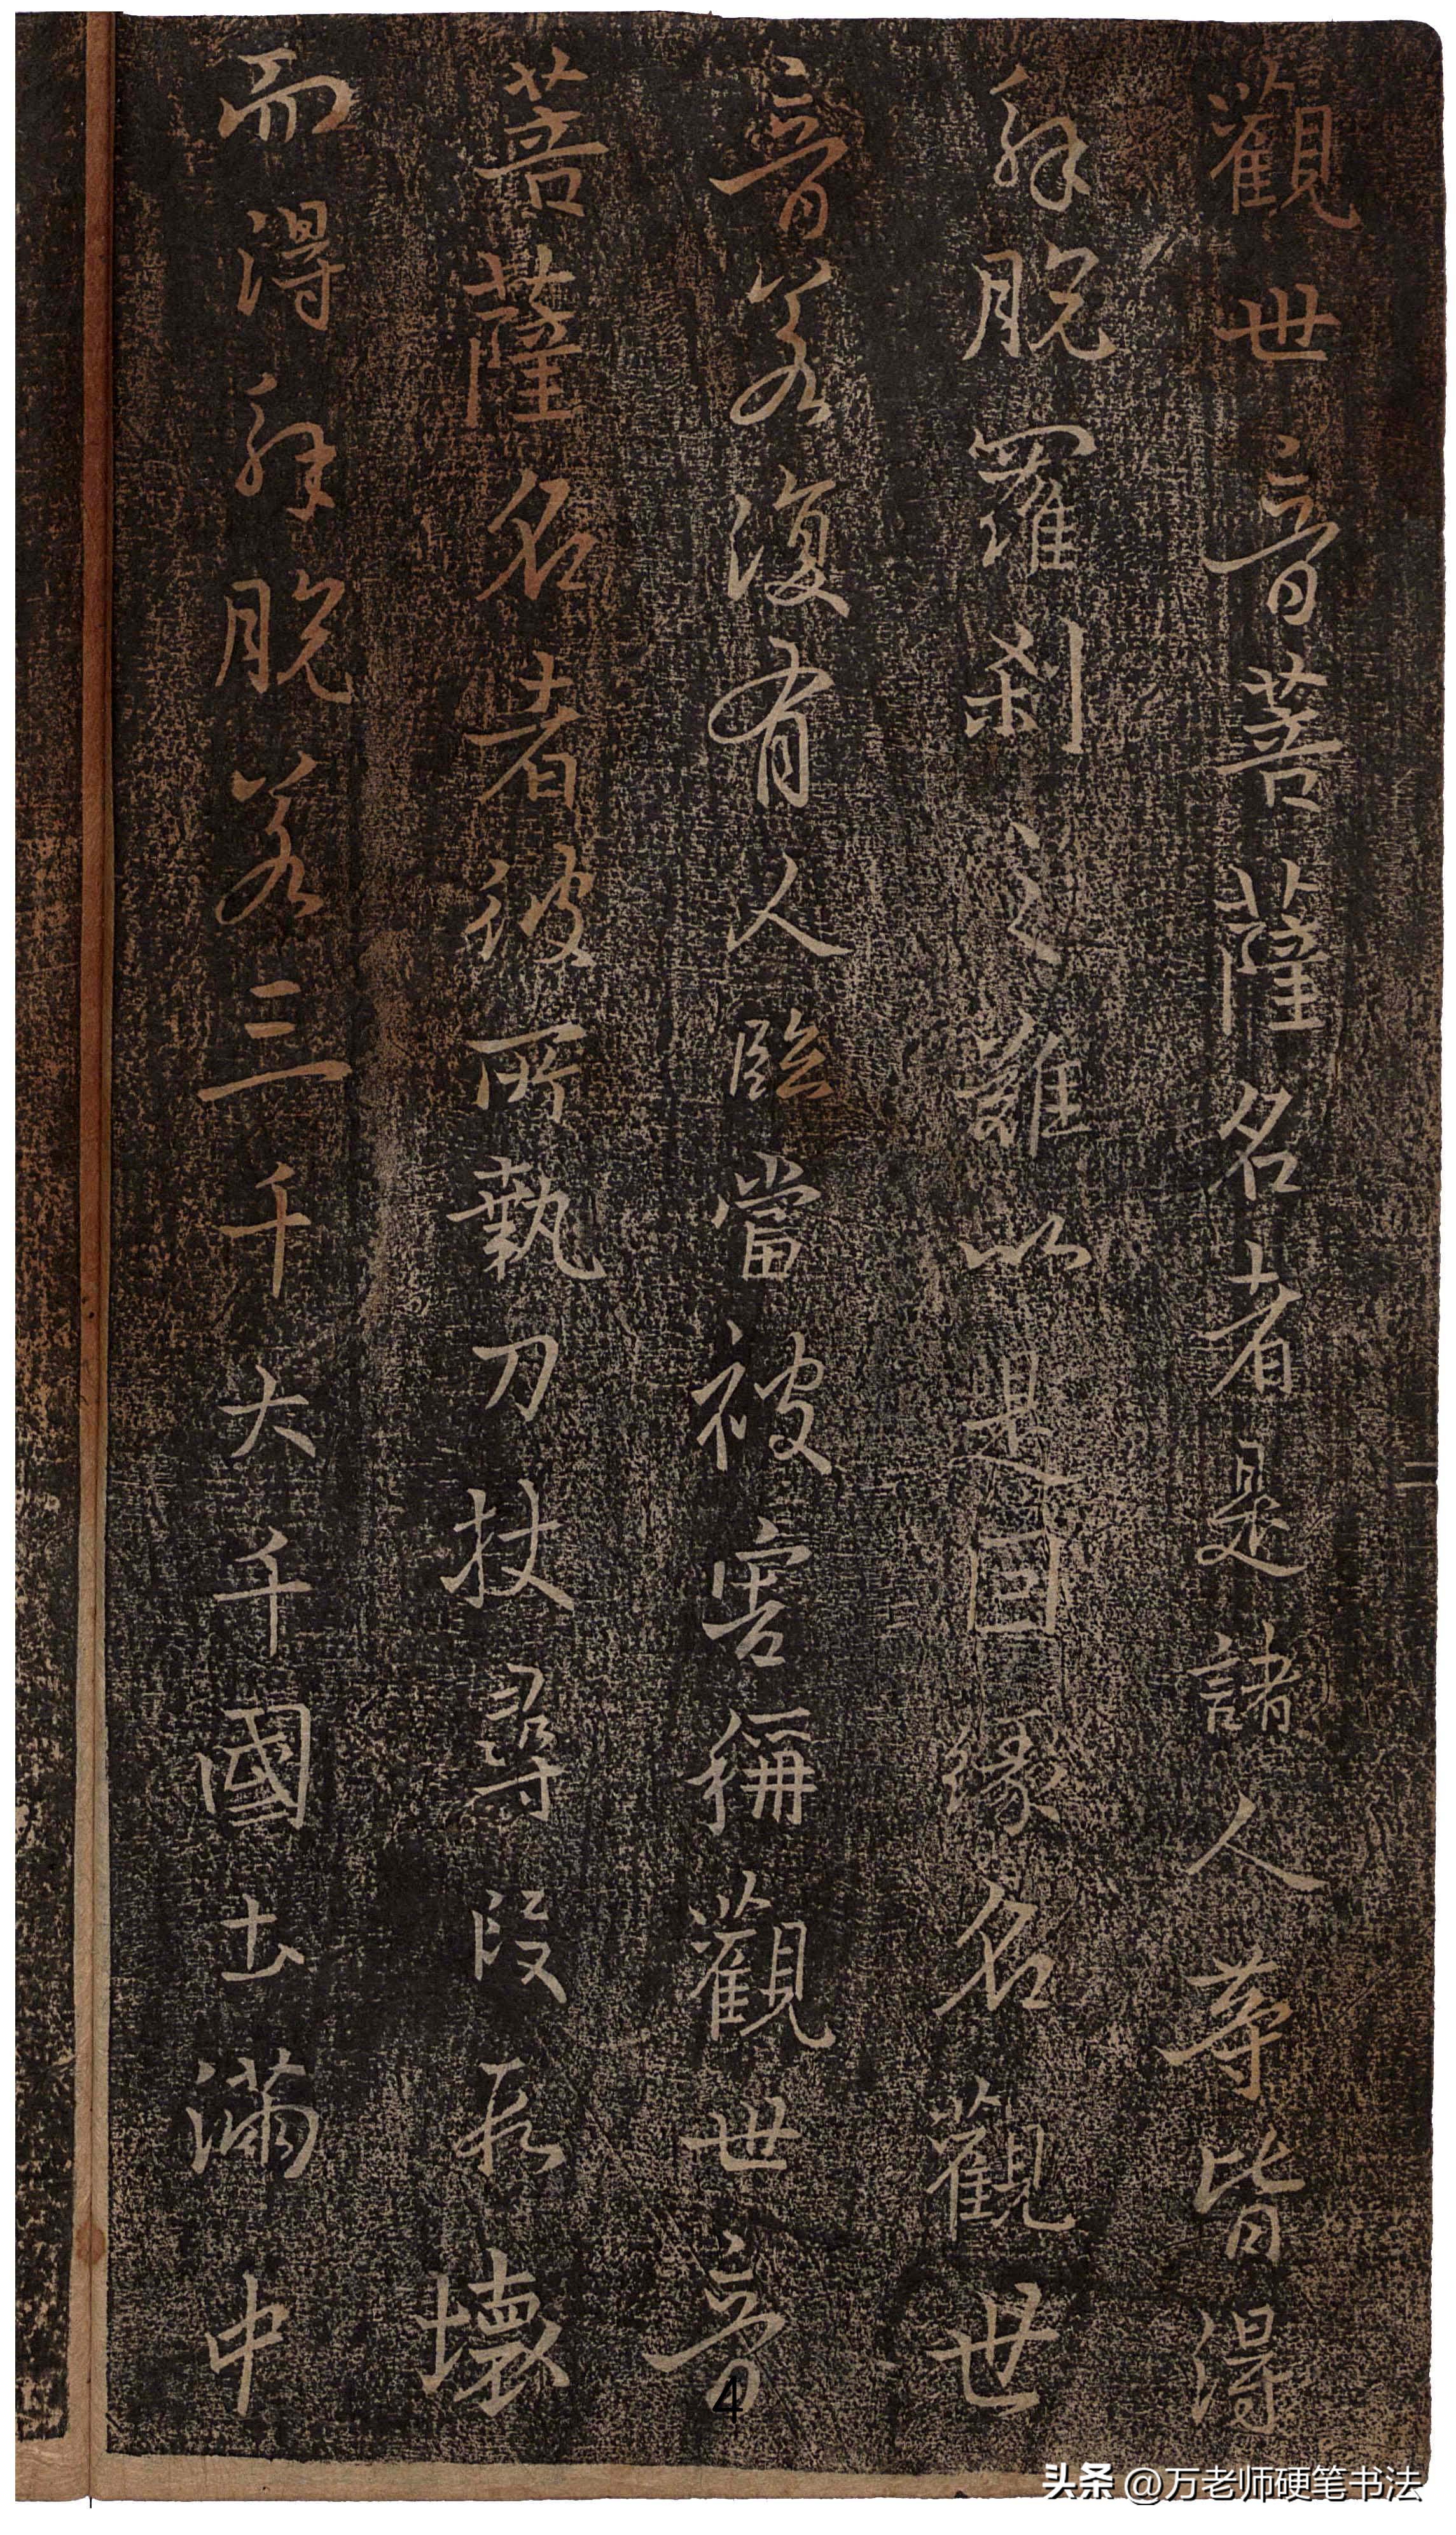 觀世音菩薩名者是諸人等皆得
解脫羅刹之難以是因緣名觀世
音若復有人臨當被害稱觀世音
菩薩名者彼所執刀杖尋段段壞
而得解脫若三千大千國土滿中
二
4
头条 @万老师硬笔书法